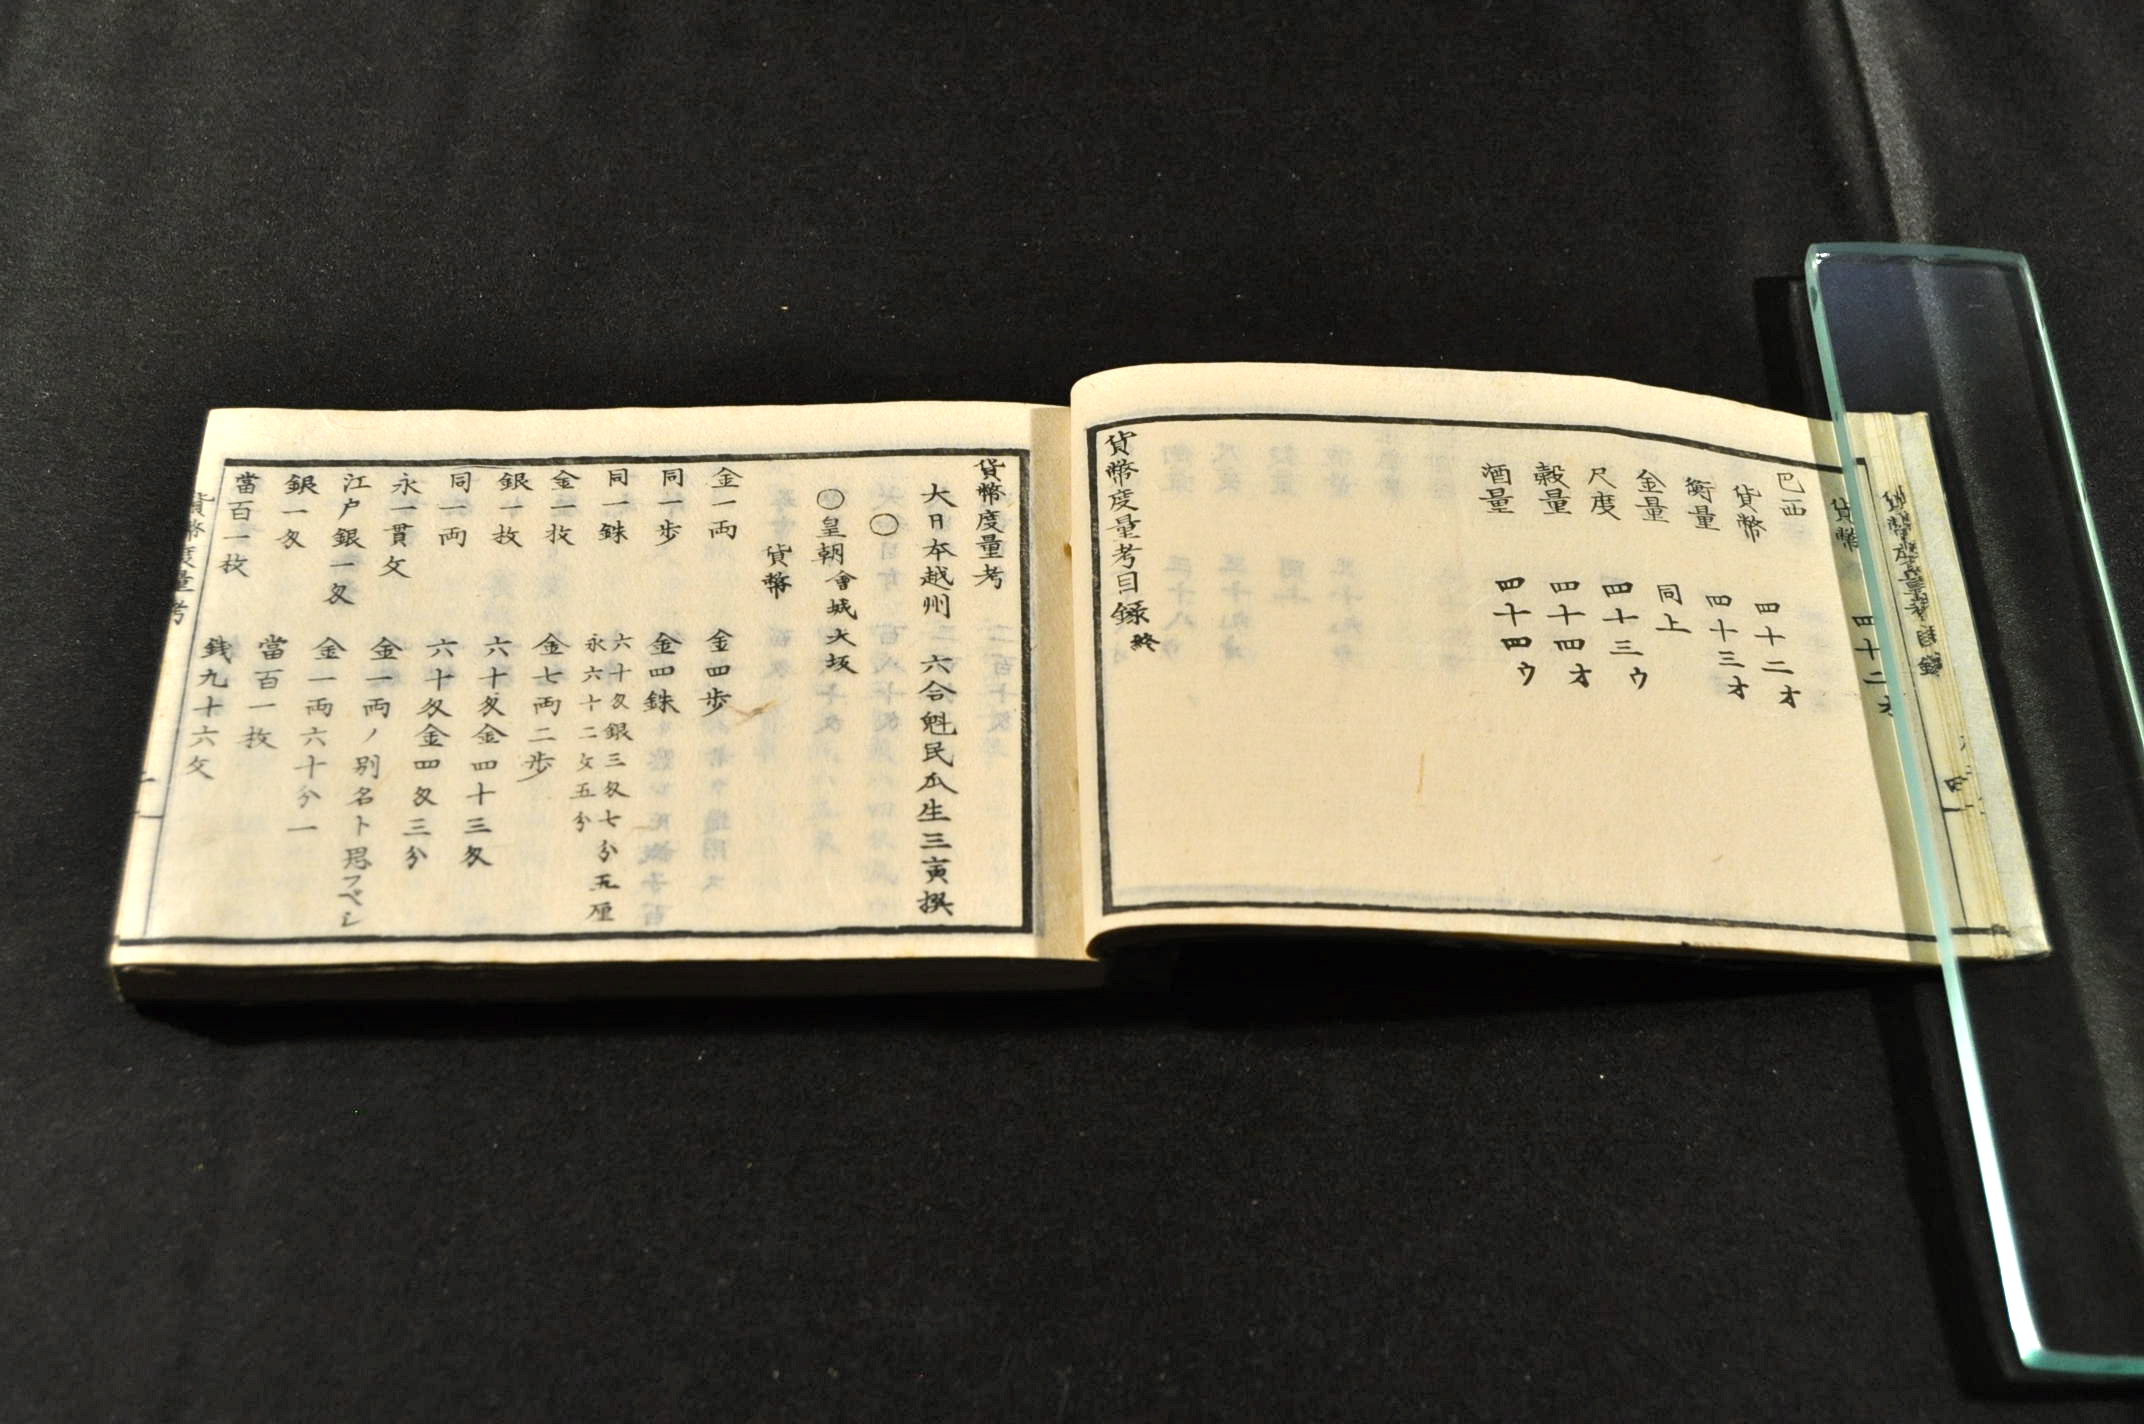 貨幣度量考目錄
貨幣 四十二オ
巴西
貨幣 四十二オ
衡量 四十三オ
金量 同上
尺度 四十三ウ
穀量 四十四オ
酒量 四十四ウ
貨幣度量考目録終
貨幣度量考
大日本越州 六合魁民瓜生三寅撰
○
○皇朝會城大坂
貨幣
金一両 金四歩
同一歩 金四銖
同一銖 六十匁銀三匁七分五厘
永六十二文五分
金一枚 金七両二歩
銀一枚 六十匁金四十三匁
同一両 六十匁金四匁三分
永一貫文 金一両ノ別名ト思フベシ
江戸銀一匁 金一両六十分一
銀一匁 當百一枚
當百一枚 銭九十六文
貨幣度量考